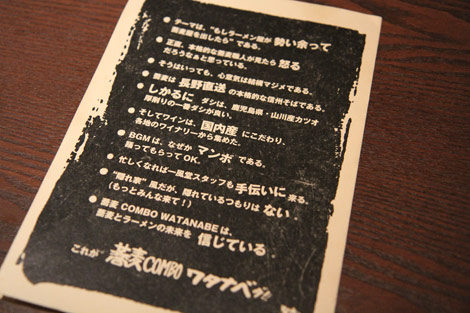 ● テーマは、"もしラーメン屋が 勢い余って
蕎麦屋を出したら"である。
● 正直、本格的な蕎麦職人が見たら 怒る
だろうなぁと思っている。
● そうはいっても、心意気は結構マジメである。
● 蕎麦は 長野直送 の本格的な信州そばである。
● しかるに ダシは、鹿児島県・山川産カツオ
厚削りの一番ダシが良い。
● そしてワインは、国内産 にこだわり、
各地のワイナリーから集めた。
● BGMは、なぜか マンボ である。
踊ってもらってOK。
● 忙しくなれば一風堂スタッフも 手伝いに 来る。
● "隠れ家"風だが、隠れているつもりは ない
(もっとみんな来て!)
● 蕎麦COMBO WATANABEは、
蕎麦とラーメンの未来を 信じている
これが 蕎麦COMBO ワタナベ